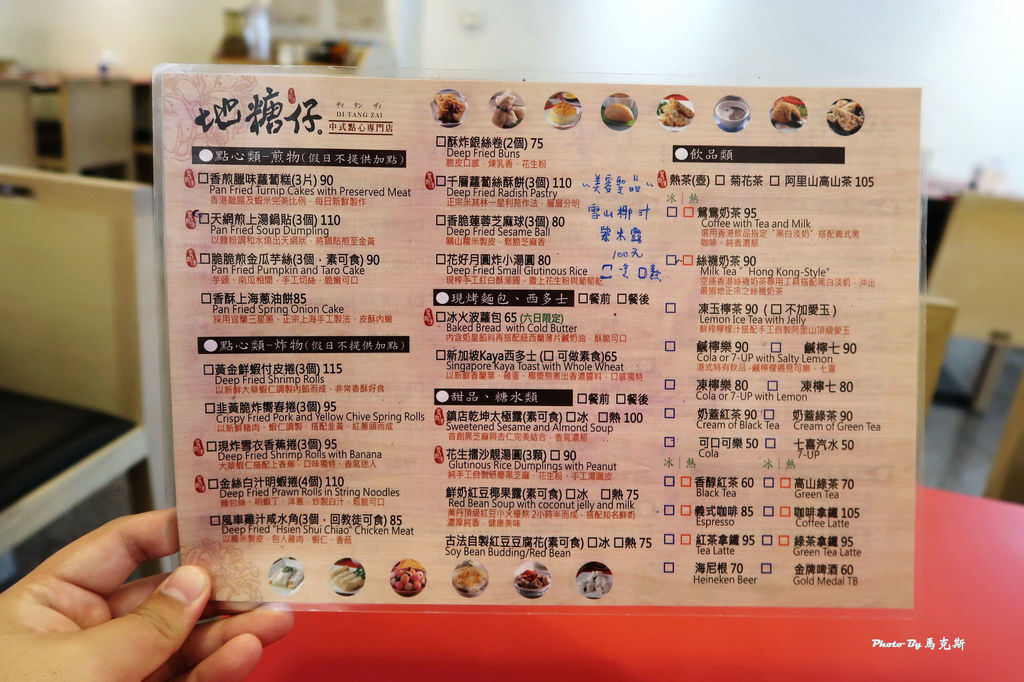 地糖仔
ディ タン ザィ
DI TANG ZAI
中式點心專門店
點心類-煎物(假日不提供加點)
香煎臘味蘿蔔糕(3片) 90
Pan Fried Turnip Cakes with Preserved Meat
香港臘腸及蝦米完美比例、每日新鮮製作
天網煎上湯鍋貼(3個) 110
Pan Fried Soup Dumpling
以麵粉調和水燒出天網狀，將鍋貼煎至金黃
脆脆煎金瓜芋絲(3個，素可食) 90
Pan Fried Pumpkin and Taro Cake
芋頭、南瓜相間，手工切絲、脆嫩可口
香酥上海蔥油餅85
Pan Fried Spring Onion Cake
採用宜蘭三星蔥、正宗上海手工製法，皮酥內嫩
點心類-炸物(假日不提供加點)
黃金鮮蝦付皮捲(3個) 115
Deep Fried Shrimp Rolls
以新鮮大草蝦仁調製內餡而成，非常香酥好食
韭黃脆炸嚮春捲(3個) 95
Crispy Fried Pork and Yellow Chive Spring Rolls
以新鮮豬肉、蝦仁調製、搭配韭黃、紅蔥頭而成
現炸雪衣香蕉捲(3個) 95
Deep Fried Shrimp Rolls with Banana
大草蝦仁搭配上香蕉，口味獨特，香氣迷人
金絲白汁明蝦捲(4個) 110
Deep Fried Prawn Rolls in String Noodles
麵包絲、明蝦丁、洋蔥，炒製白汁，鬆脆可口
風車雞汁咸水角(3個，回教徒可食) 85
Deep Fried "Hsien Shui Chiao" Chicken Meat
以糯米製皮，包入雞肉、蝦仁、香菇
酥炸銀絲卷(2個) 75
Deep Fried Buns
脆皮口感，煉乳香、花生粉
千層蘿蔔絲酥餅(3個) 110
Deep Fried Radish Pastry
正宗米其林一星利苑作法，層層分明
香脆蓮蓉芝麻球(3個) 80
Deep Fried Sesame Ball
關山糯米製皮，鬆脆芝麻香
花好月圓炸小湯圓 80
Deep Fried Small Glutinous Rice
現榨手工紅白酥湯圓，撒上花生粉與葡萄乾
現烤麵包、西多士 餐前 餐後
冰火波蘿包 65 (六日限定)
Baked Bread with Cold Butter
內含奶皇餡料再搭配紐西蘭薄片鹹奶油，酥脆可口
新加坡Kaya西多士 ( 可做素食)65
Singapore Kaya Toast with Whole Wheat
以新鮮香蘭葉、雞蛋、椰漿熬煮出香濃醬料，口感獨特
甜品、糖水類 餐前 餐後
鎮店乾坤太極露(素可食) 冰 熱 100
Sweetened Sesame and Almond Soup
首創黑芝麻與杏仁完美結合，香氣濃郁
花生擂沙靚湯圓(3顆) 90
Glutinous Rice Dumplings with Peanut
純手工自製研磨黑芝麻、花生粉，手工湯圓皮
鮮奶紅豆椰果露(素可食) 冰 熱 75
Red Bean Soup with coconut jelly and milk
萬丹頂級紅豆小火慢熬2小時半而成，搭配知名鮮奶
濃厚純香，健康美味
古法自製紅豆豆腐花(素可食) 冰 熱 75
Soy Bean Budding/Red Bean
美容聖品
雪山椰汁
紫米露
100元
冰 熱
飲品類
熱茶(壺) 菊花茶 阿里山高山茶 105
冰 熱
鴛鴦奶茶 95
Coffee with Tea and Milk
選用香港飲品指定"黑白淡奶"搭配義式黑
咖啡，純香濃郁
絲襪奶茶 90
Milk Tea " Hong Kong-Style"
空運香港絲襪奶茶專用工具搭配黑白淡奶，沖出
最道地正宗之絲襪奶茶
凍玉檸茶 90 ( 不加愛玉 )
Lemon Ice Tea with Jelly
鮮榨檸檬汁搭配手工自製阿里山頂級愛玉
鹹檸樂 90 鹹檸七 90
Cola or 7-UP with Salty Lemon
港式特有飲品，鹹檸檬遇見可樂、七喜
凍檸樂 80 凍檸七 80
Cola or 7-UP with Lemon
奶蓋紅茶 90 奶蓋綠茶 90
Cream of Black Tea Cream of Green Tea
可口可樂 50 七喜汽水 50
Cola 7-UP
冰 熱 冰 熱
香醇紅茶 60 高山綠茶 70
Black Tea Green Tea
義式咖啡 85 咖啡拿鐵 105
Espresso Coffee Latte
紅茶拿鐵 95 綠茶拿鐵 95
Tea Latte Green Tea Latte
海尼根 70 金牌啤酒 60
Heineken Beer Gold Medal TB
Photo By 馬克斯